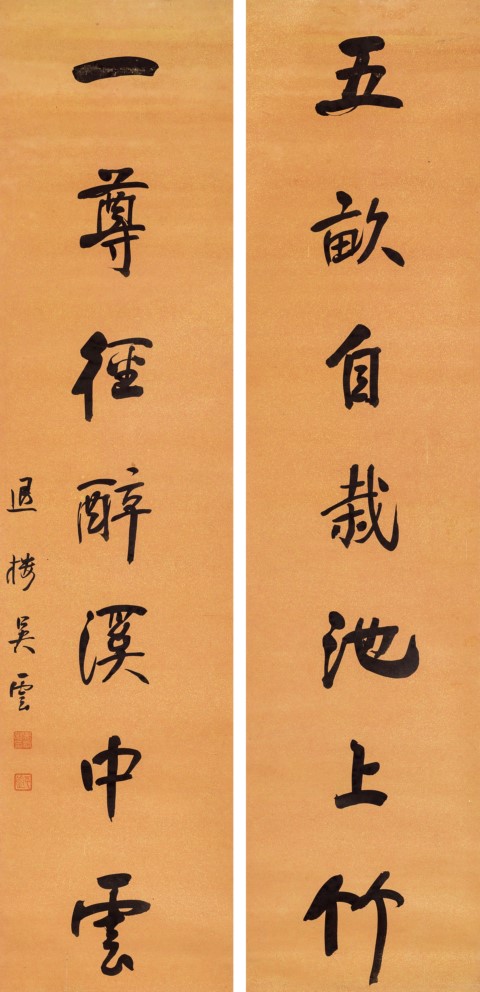 五畝自栽池上竹
一尊徑醉溪中雲
退樓吳雲